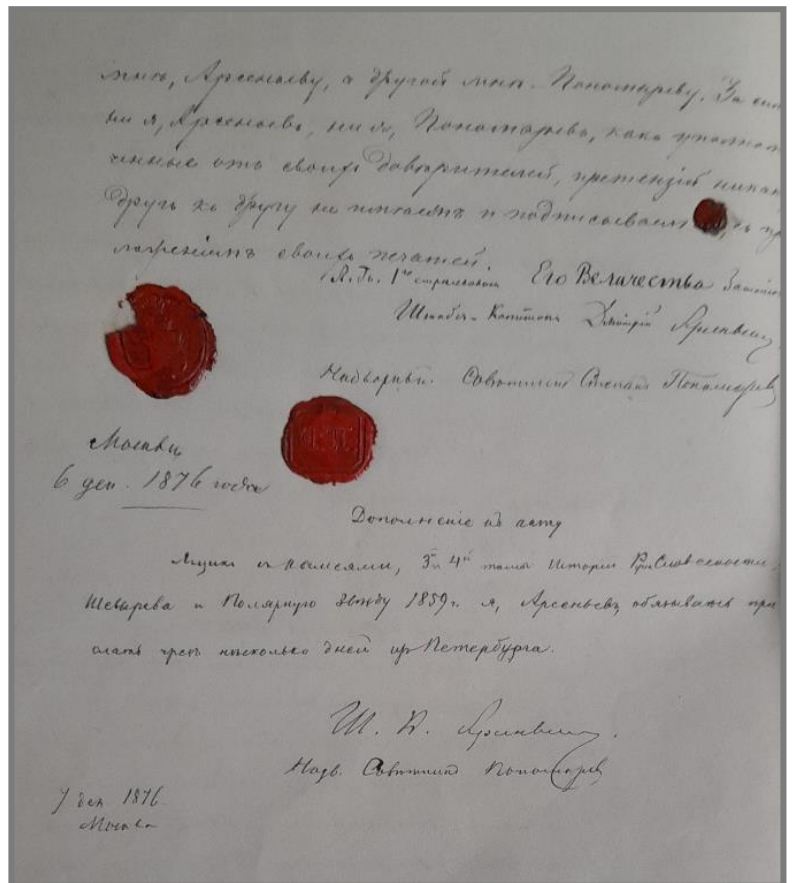 мнѣ, Арсеньеву, а другой мнѣ, Пономареву. За сим
ни я, Арсеньевъ, ни я, Пономаревъ, какъ уполномо
ченные отъ своихъ довѣрителей, претензій никак
другъ къ другу не имѣемъ и подписываем съ пр
ложеніемъ своихъ печатей.
Л. Гв. 1го стрѣлковаго Его Величества
Штабсъ-Капитанъ Дмитрій Арсеньевъ
Надворный Совѣтникъ Степанъ Пономаревъ
Москва
6 дек. 1876 года
Дополненіе къ акту
Ящикъ съ камеями, 3й и 4й томы Исторіи Рус. Словесности
Шевырева и Полярную Звѣзду 1859 г. я, Арсеньевъ, обязываюсь при
слать чрезъ нѣсколько дней изъ Петербурга.
Ш. К. Арсеньевъ.
Надв. Совѣтникъ Пономаревъ
7 дек. 1876
Москва